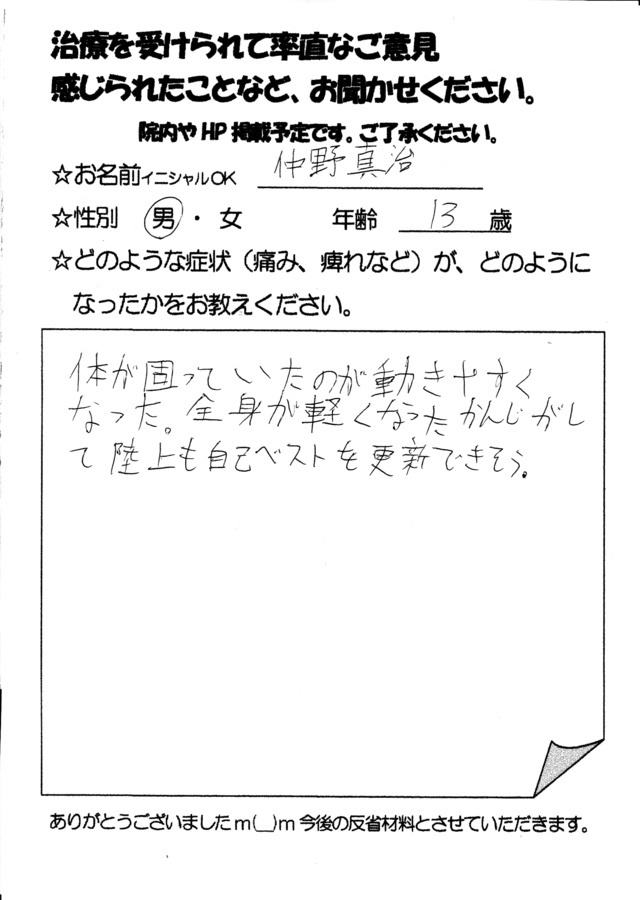 治療を受けられて率直なご意見
感じられたことなど、お聞かせください。
院内やHP掲載予定です。ご了承ください。
☆お名前イニシャルOK 仲野真治
☆性別 男・女 年齢 13 歳
☆どのような症状（痛み、痺れなど）が、どのように
なったかをお教えください。
体が固っていたのが動きやすく
なった。全身が軽くなったかんじがし
て陸上も自己ベストを更新できそう。
ありがとうございましたm(__)m今後の反省材料とさせていただきます。